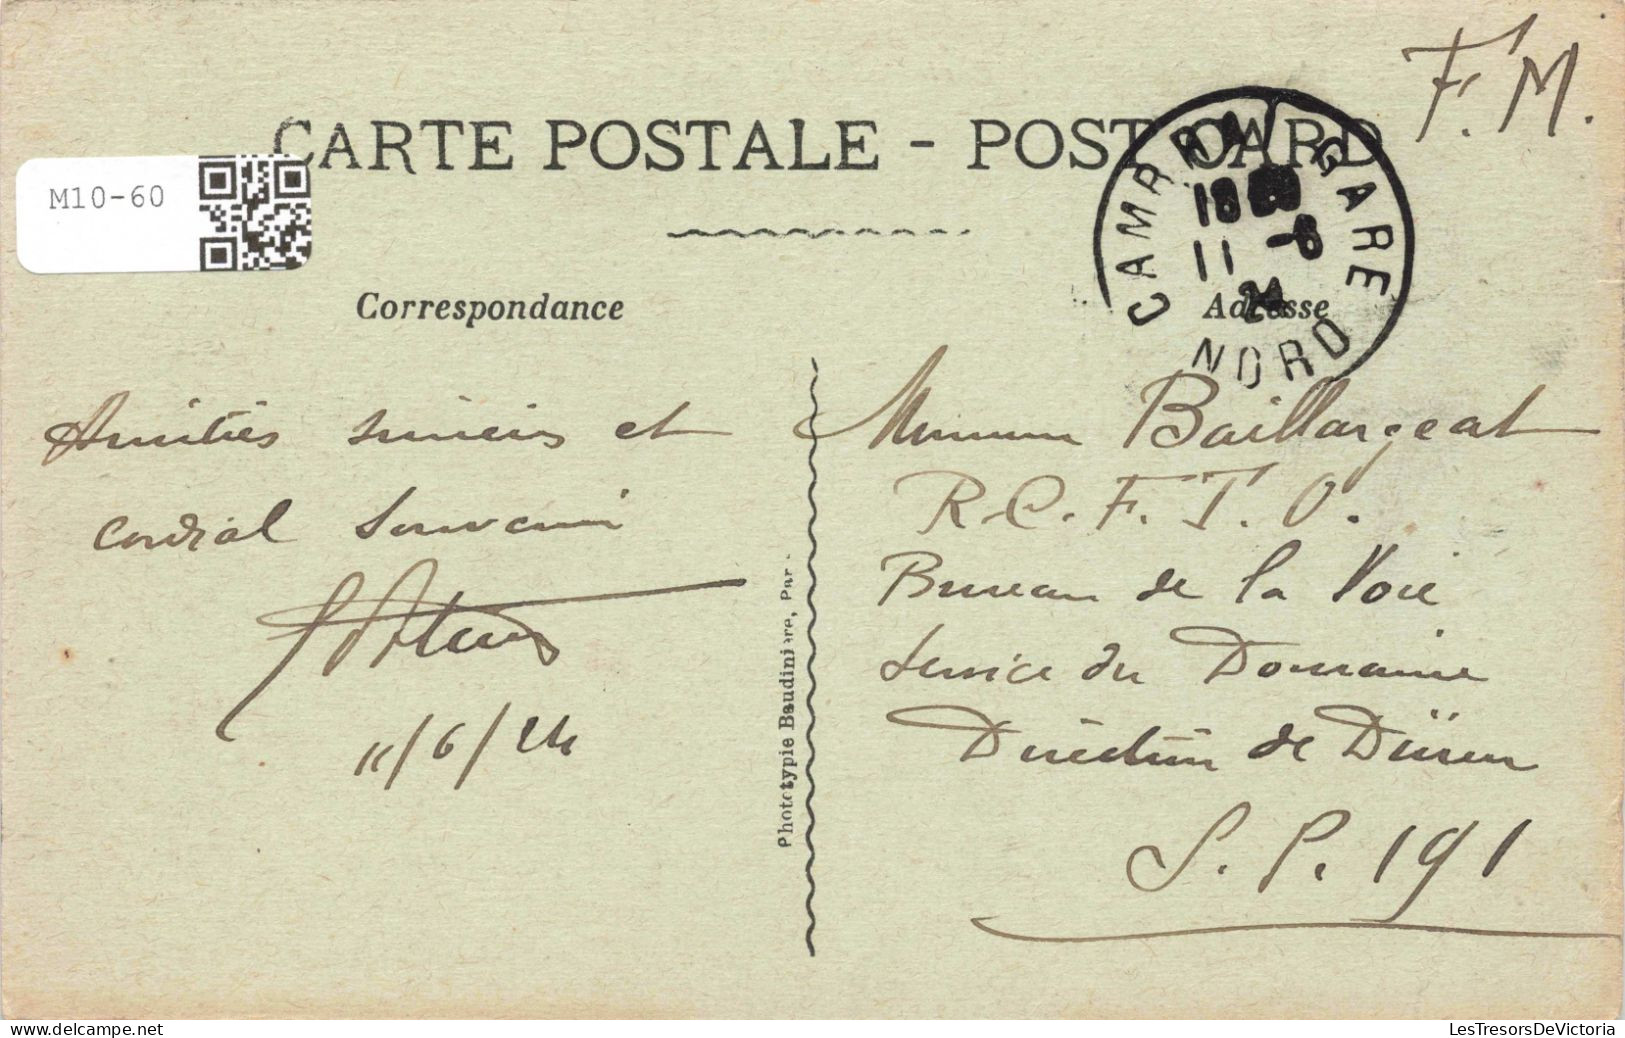 F. M.
CARTE POSTALE - POST CARD
M10-60
CAMBRAI GARE
18
11 -6
24
NORD
Correspondance
Adresse
Amitiés sincères et
cordial souvenir
11/6/24
Phototypie Baudinière, Par
Monsieur Baillargeat
R.C.F.T.O.
Bureau de la Voie
Service du Domaine
Direction de Düren
S.P. 191
delcampe.net
LesTresorsDeVictoria